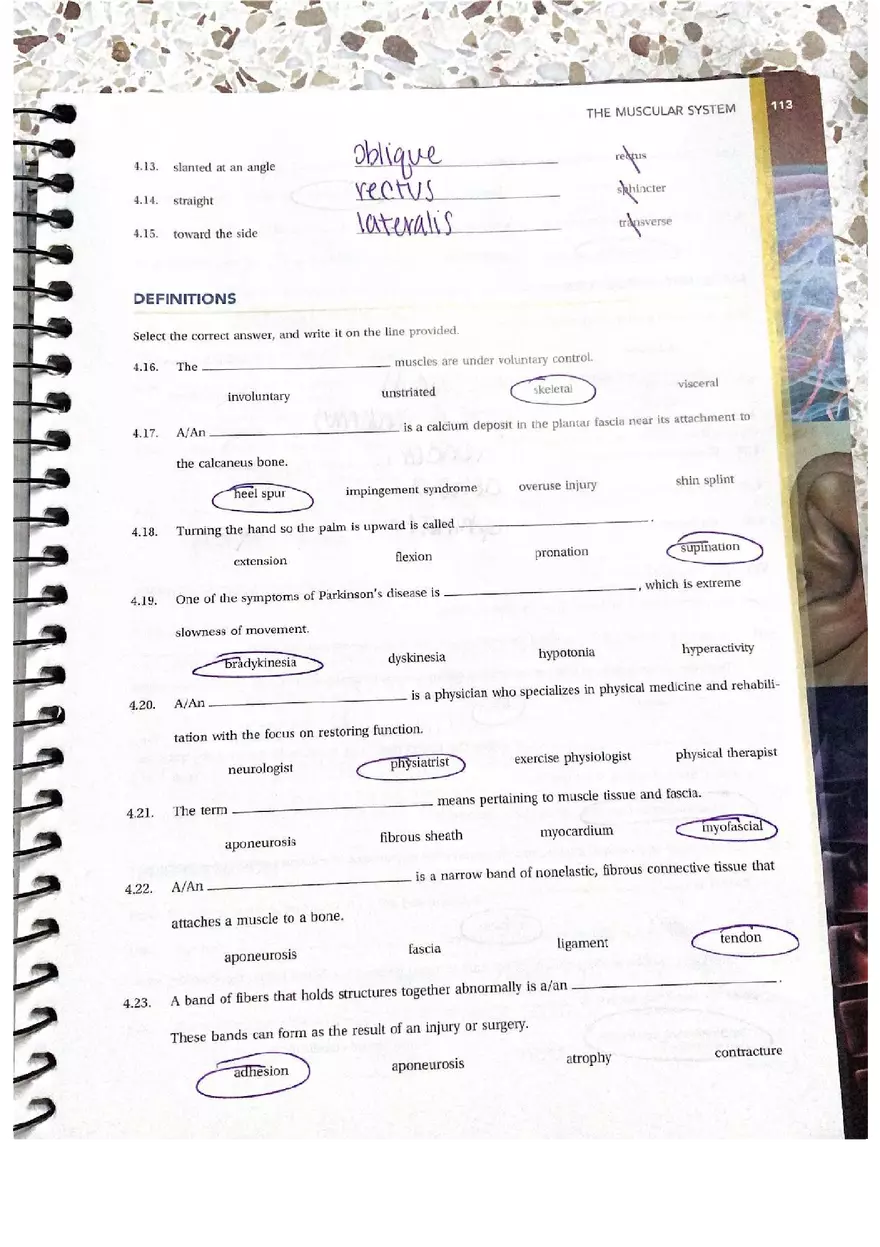 THE MUSCULAR SYSTEM 113
4.13. slanted at an angle oblique rectus
4.14. straight rectus sphincter
4.15. toward the side lateralis transverse
DEFINITIONS
Select the correct answer, and write it on the line provided.
4.16. The ____ muscles are under voluntary control.
involuntary unstriated skeletal visceral
4.17. A/An ____ is a calcium deposit in the plantar fascia near its attachment to
the calcaneus bone.
heel spur impingement syndrome overuse injury shin splint
4.18. Turning the hand so the palm is upward is called ____.
extension flexion pronation supination
4.19. One of the symptoms of Parkinson's disease is ____, which is extreme
slowness of movement.
bradykinesia dyskinesia hypotonia hyperactivity
4.20. A/An ____ is a physician who specializes in physical medicine and rehabili-
tation with the focus on restoring function.
neurologist physiatrist exercise physiologist physical therapist
4.21. The term ____ means pertaining to muscle tissue and fascia.
aponeurosis fibrous sheath myocardium myofascial
4.22. A/An ____ is a narrow band of nonelastic, fibrous connective tissue that
attaches a muscle to a bone.
aponeurosis fascia ligament tendon
4.23. A band of fibers that holds structures together abnormally is a/an ____.
These bands can form as the result of an injury or surgery.
adhesion aponeurosis atrophy contracture